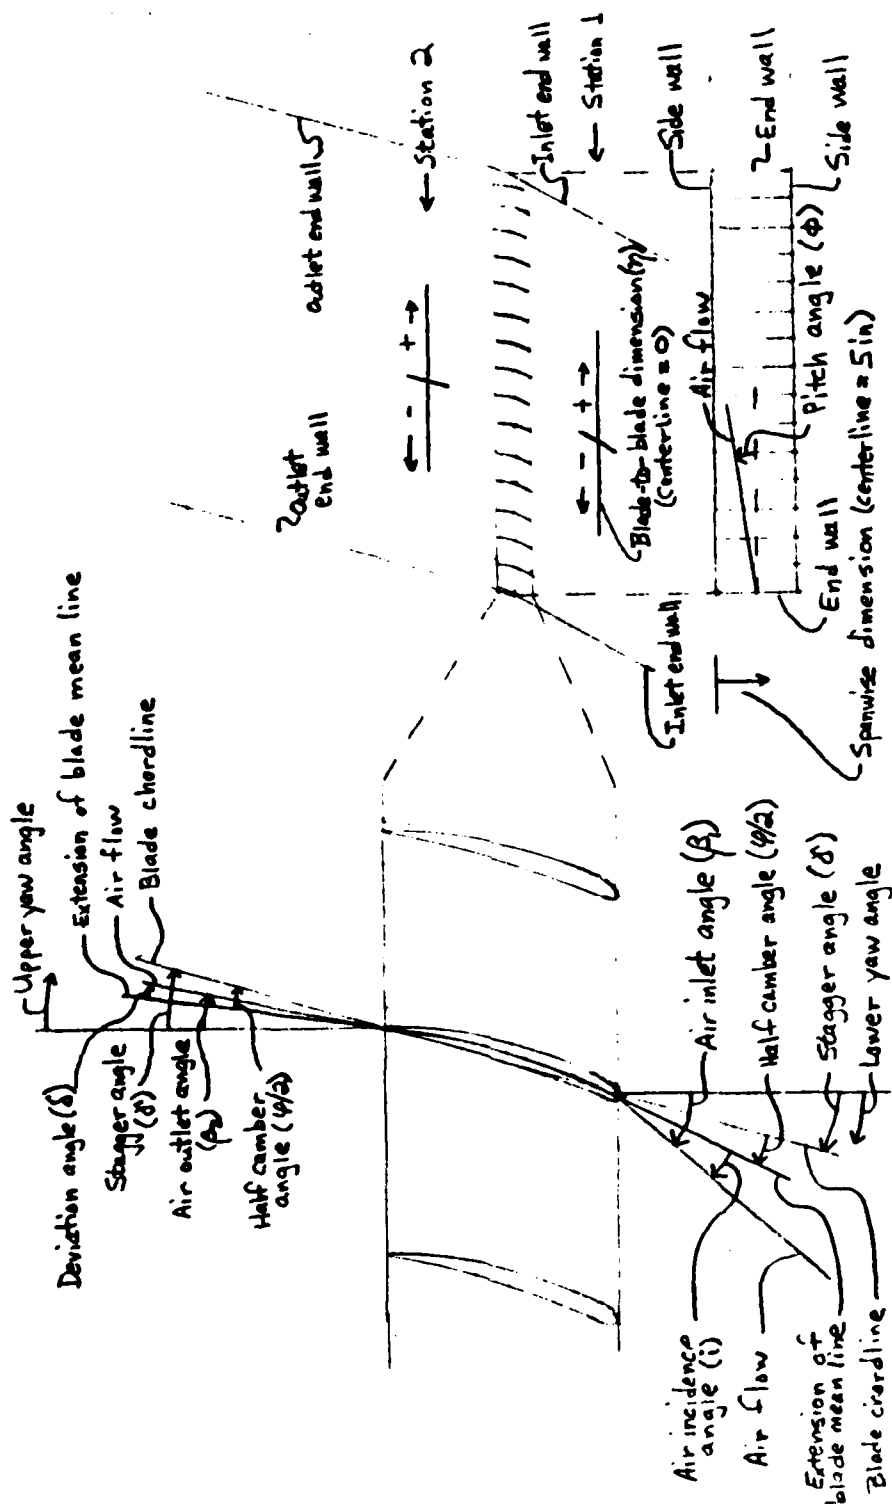 Upper yaw angle
Extension of blade mean line
Air flow
Blade chordline
Deviation angle (δ)
Stagger angle
(γ)
Air outlet angle
(β₂)
Half camber
angle (φ/2)
Air inlet angle (β₁)
Half camber angle (φ/2)
Stagger angle (γ)
Lower yaw angle
Air incidence
angle (i)
Air flow
Extension of
blade mean line
Blade chordline
outlet end wall
outlet
end wall
← Station 2
← - / + →
Inlet end wall
← Station 1
← - / + →
Blade-to-blade dimension (η)
(Centerline = 0)
Inlet end wall
Side wall
Air flow
End wall
Side wall
Pitch angle (Φ)
End wall
Spanwise dimension (centerline = 5in)